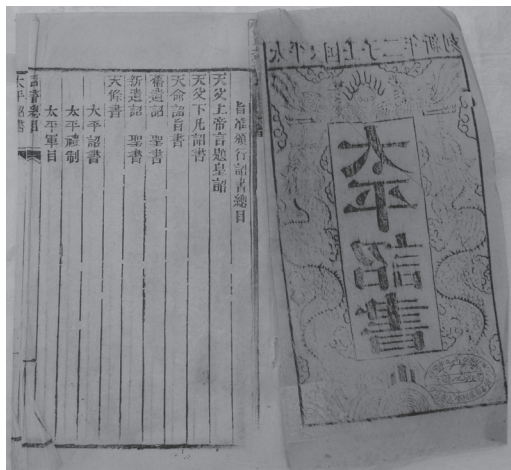 太平天国壬子二年新刻
太平詔書
旨准頒行詔書總目
天父上帝言題皇詔
天父下凡詔書
天命詔旨書
舊遺詔 聖書
新遺詔 聖書
天條書
太平詔書
太平禮制
太平軍目
詔書總目
太平詔書